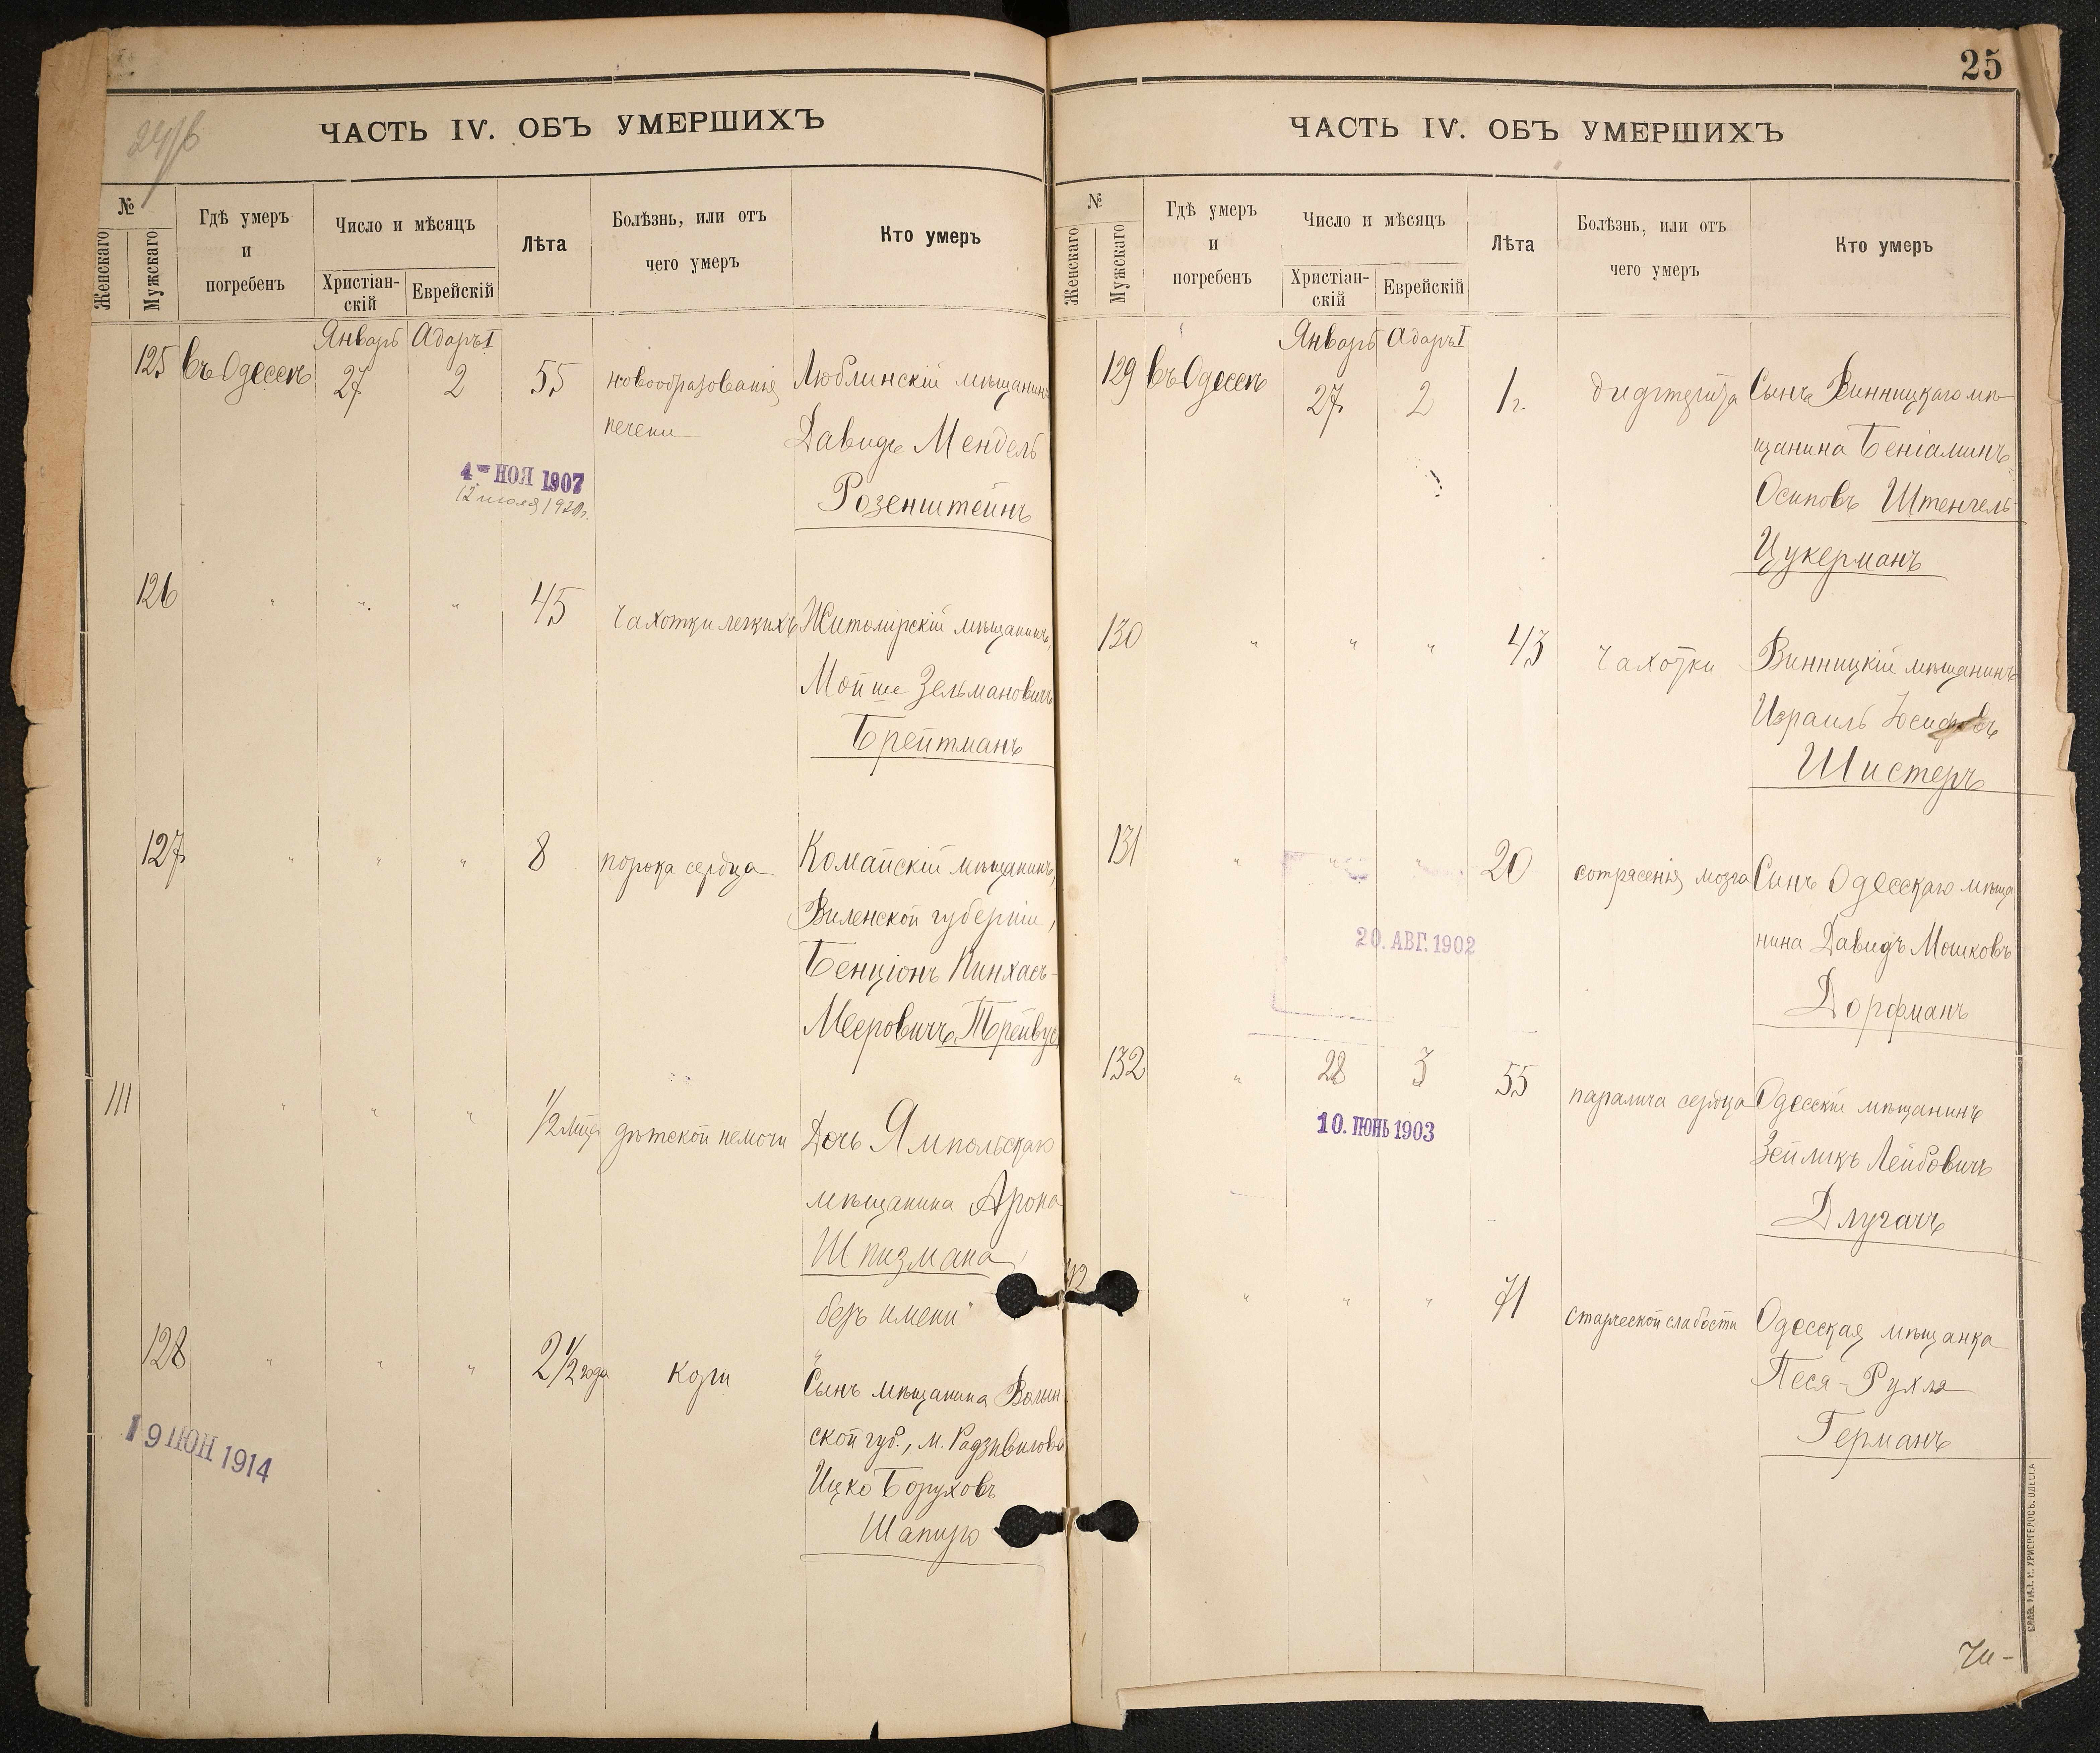 ЧАСТЬ IV. ОБЪ УМЕРШИХЪ
№
Женскаго
Мужскаго
Гдѣ умеръ
и
погребенъ
Число и мѣсяцъ
Христіан-
скій
Еврейскій
Лѣта
Болѣзнь, или отъ
чего умеръ
Кто умеръ
Январь Адаръ I
125 въ Одессѣ 27 2 55 новообразованія Люблинскій мѣщанинъ
печени Давидъ Мендель
Розенштейнъ
4 НОЯ 1907
126 " " " 45 чахотки легкихъ Житомірскій мѣщанинъ,
Мойше Зельмановичъ
Брейтманъ
127 " " " 8 порока сердца Комайскій мѣщанинъ,
Виленской губерніи,
Бенціонъ Пинхасъ-
Мееровичъ Трейвус
111 " " " 1/2 мѣц дѣтской немочи Дочь Ямпольскаго
мѣщанина Арона
Шпизмана
"безъ имени"
128 " " " 2 1/2 года кори Сынъ мѣщанина Волын
ской губ., м. Радзивилова
Ицко Боруховъ
Шапиро
19 ІЮН 1914
25
ЧАСТЬ IV. ОБЪ УМЕРШИХЪ
№
Женскаго
Мужскаго
Гдѣ умеръ
и
погребенъ
Число и мѣсяцъ
Христіан-
скій
Еврейскій
Лѣта
Болѣзнь, или отъ
чего умеръ
Кто умеръ
Январь Адаръ I
129 въ Одессѣ 27 2 1 г. Сынъ Винницкаго мѣ-
щанина Беніаминъ
Осиповъ Штенгель-
Цукерманъ
130 " " " 43 чахотки Винницкій мѣщанинъ
Израиль
Шистеръ
131 " " " 20 сотрясенія мозга Сынъ Одесскаго мѣща
нина Давидъ Мошковъ
Дорфманъ
20. АВГ. 1902
132 " 28 3 55 паралича сердца Одесскій мѣщанинъ
Зейликъ Лейбовичъ
Длугачъ
10. ІЮНЬ 1903
112 " " " 71 старческой слабости Одесская мѣщанка
Песя-Рухля
Германъ